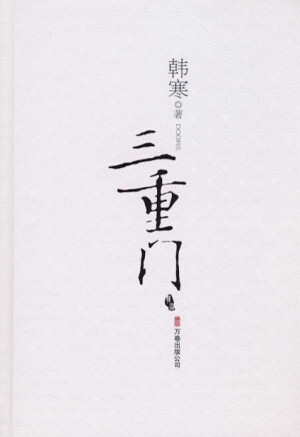 韩寒◎著
DOORS
三重门
万卷出版公司